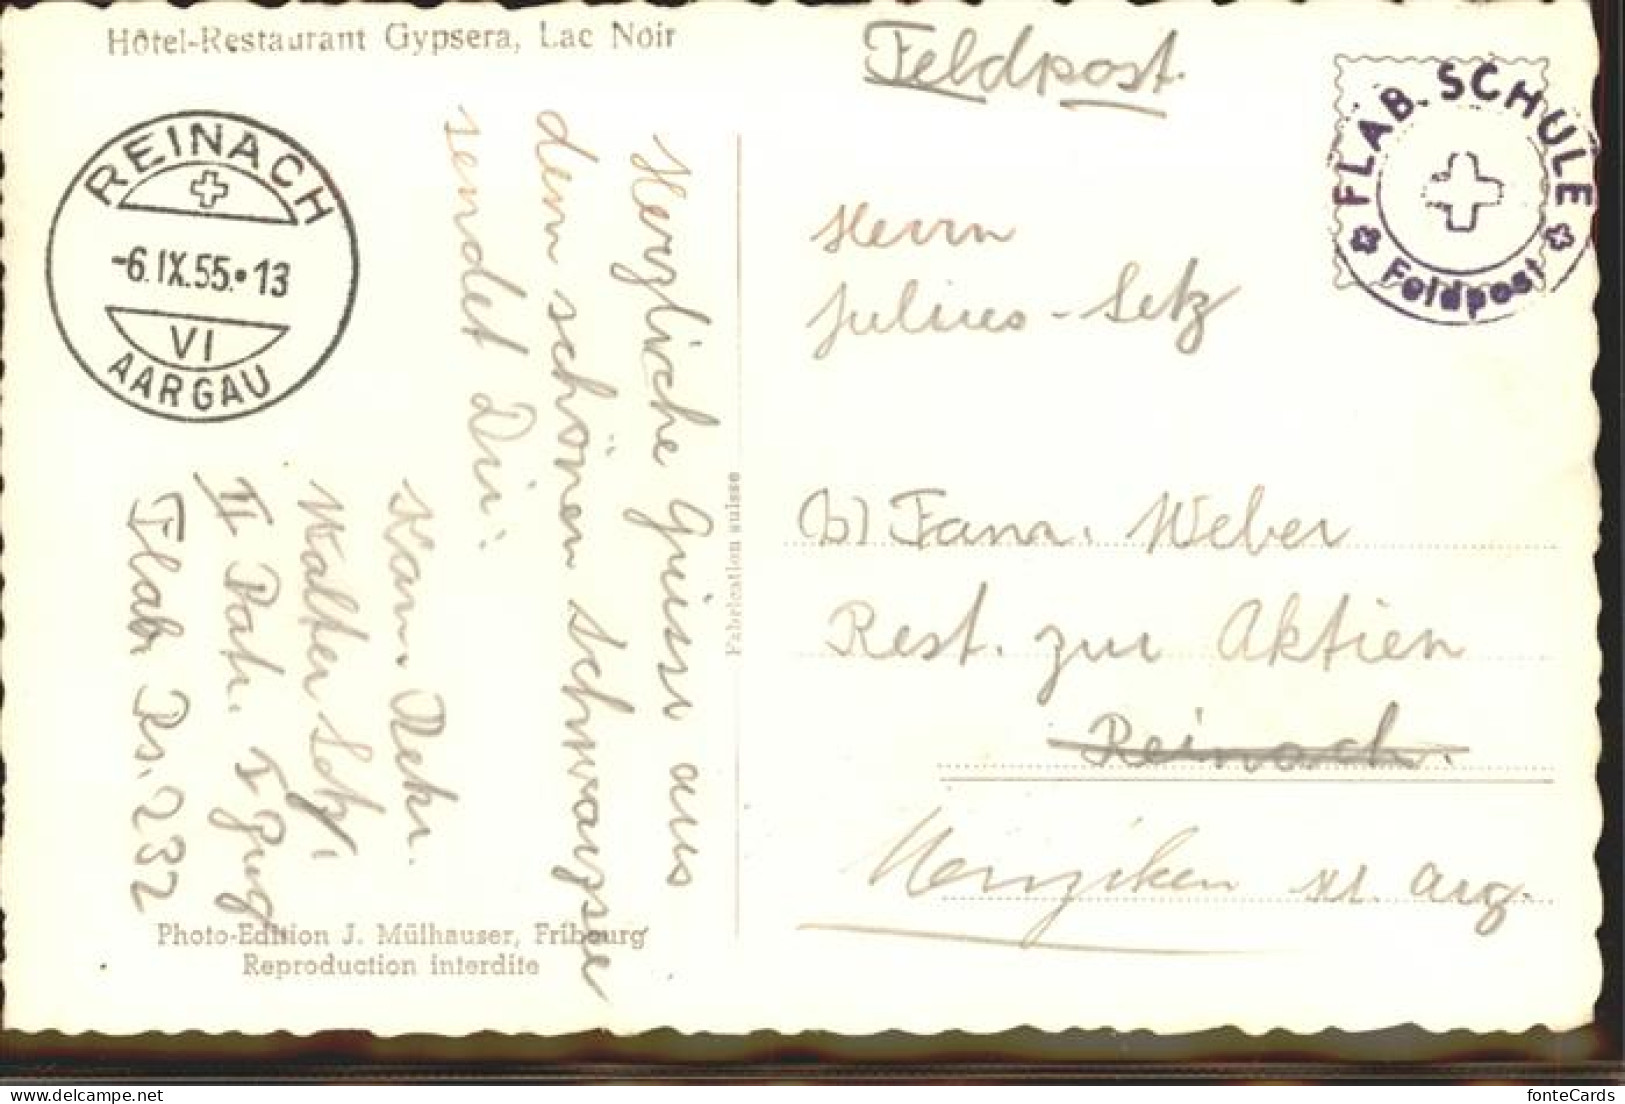 Hôtel-Restaurant Gypsera, Lac Noir
Feldpost.
FLAB. SCHULE
Feldpost
REINACH
-6.IX.55.•13
VI
AARGAU
Herzliche Grüsse aus
dem schönen Schwarzsee
sendet Dir:
Kan. Rekr.
Walter Setz
II Batr. I Zug
Flab Rs. 232
Herrn
Julius-Setz
b) Fam. Weber
Rest. zur Aktien
Reinach.
Menziken Kt. Arg.
Fabrication suisse
Photo-Edition J. Mülhauser, Fribourg
Reproduction interdite
fonteCards